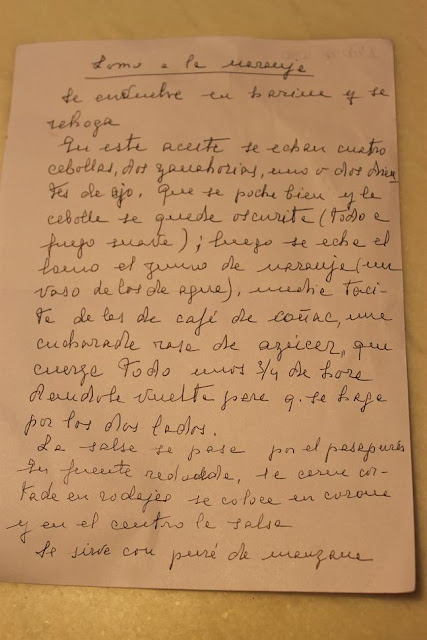 Lomo a la naranja
Se envuelve en harina y se
rehoga
En este aceite se echan cuatro
cebollas, dos zanahorias, uno o dos dien
tes de ajo. Que se poche bien y la
cebolla se quede oscurita (todo a
fuego suave); luego se echa el
lomo el zumo de naranja (un
vaso de los de agua), media taci-
ta de las de café de coñac, una
cucharada rasa de azúcar, que
cuerza todo unos 3/4 de hora
dandole vuelta para q. se haga
por los dos lados.
La salsa se pasa por el pasapurés
En fuente redonda, la carne cor-
tada en rodajas se coloca en corona
y en el centro la salsa
Se sirve con puré de manzana